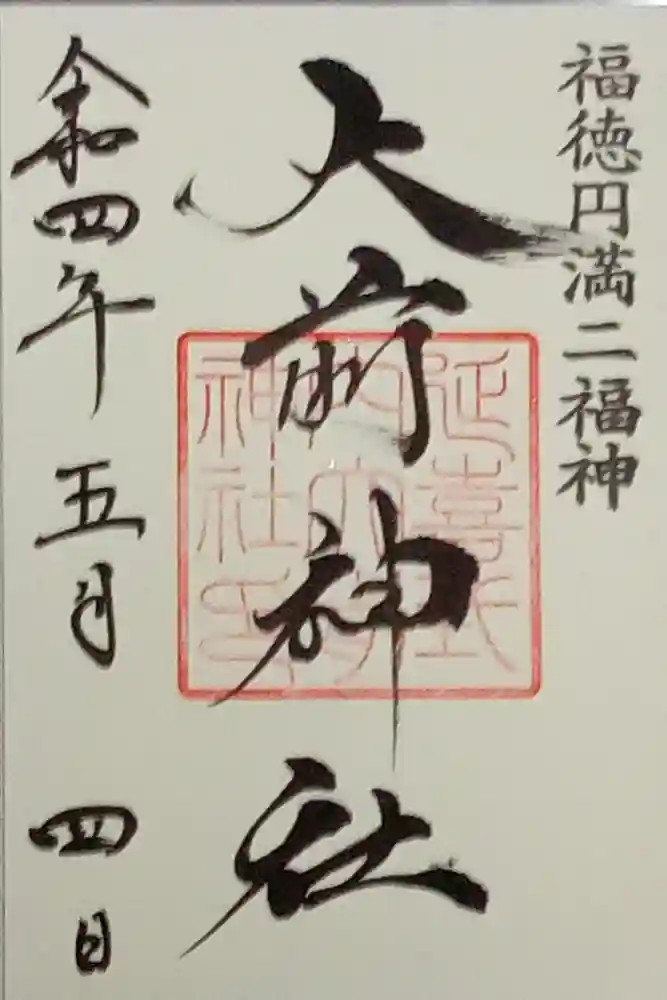 福徳円満二福神
大前神社
延喜式
内大前
神社印
令和四年五月四日